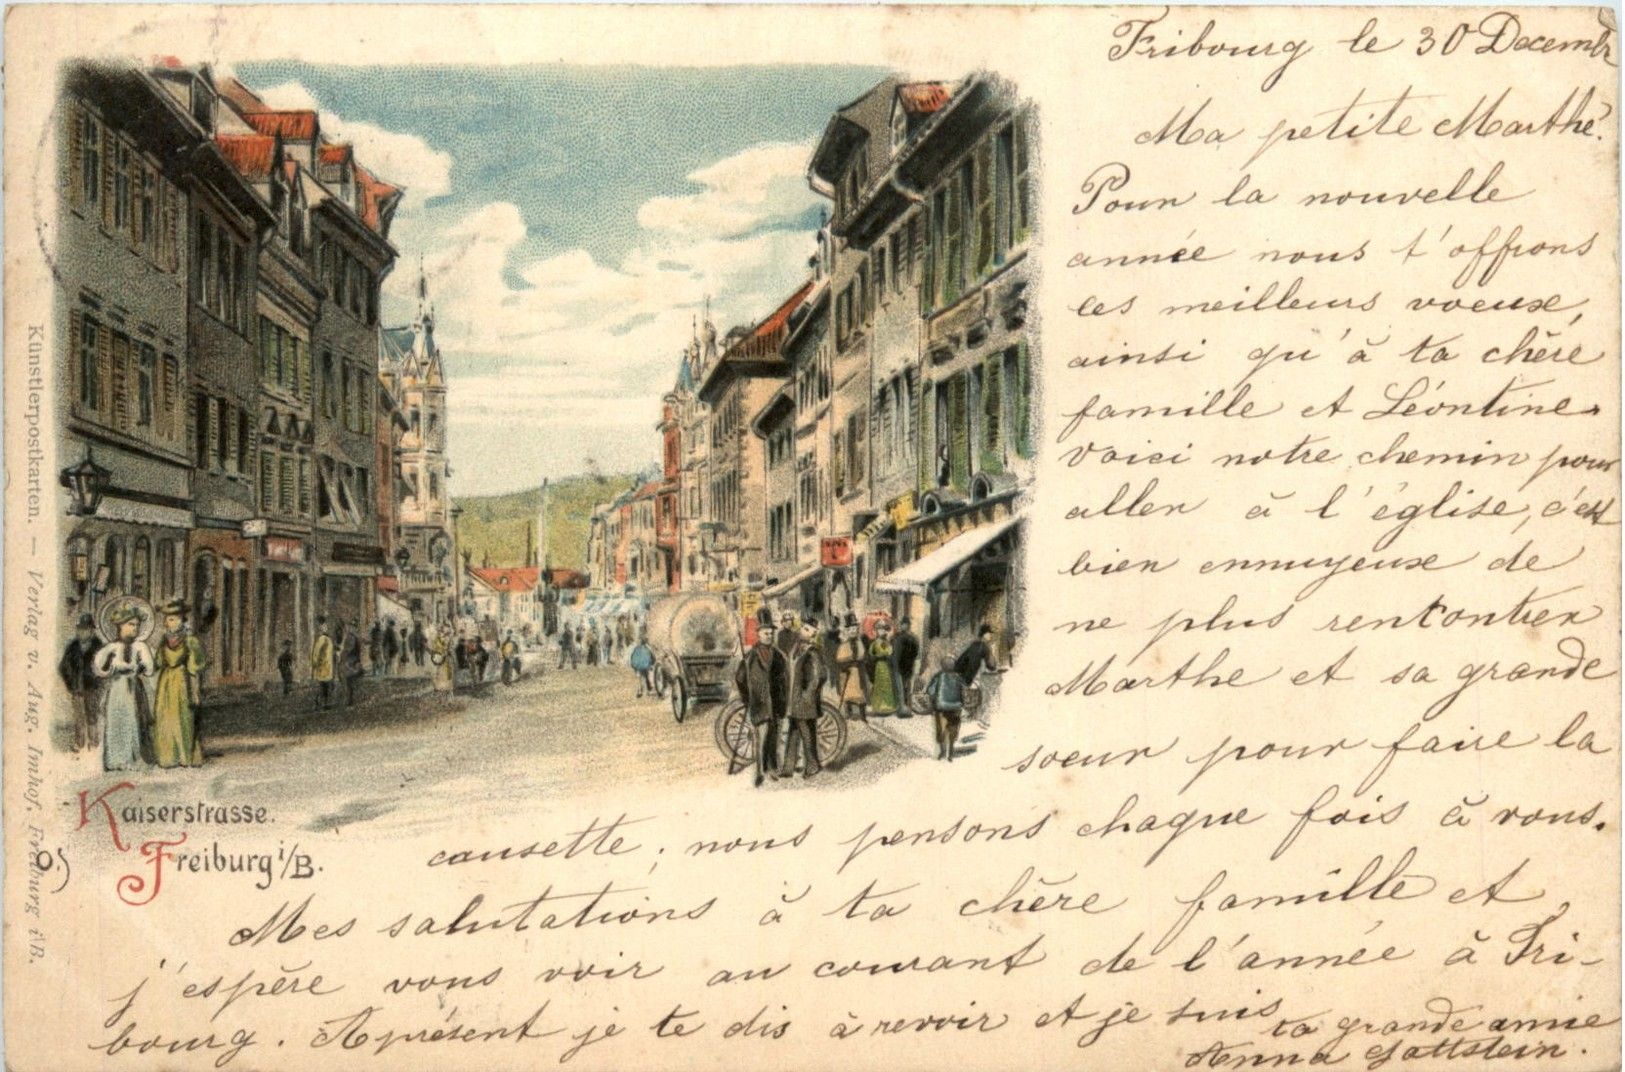 Fribourg le 30 Decembr
Ma petite Marthe.
Pour la nouvelle
année nous t'offrons
les meilleurs voeux,
ainsi qu'à ta chère
famille et Léontine.
voici notre chemin pour
aller à l'église, c'est
bien ennuyeuse de
ne plus rencontrer
Marthe et sa grande
soeur pour faire la
causette; nous pensons chaque fois à vous.
Mes salutations à ta chère famille et
j'espère vous voir au courant de l'année à Fri-
bourg. Aprésent je te dis à revoir et je suis
ta grande amie
Anna
Kaiserstrasse.
Freiburg i/B.
Künstlerpostkarten. — Verlag v. Aug. Imhof, Freiburg i/B.